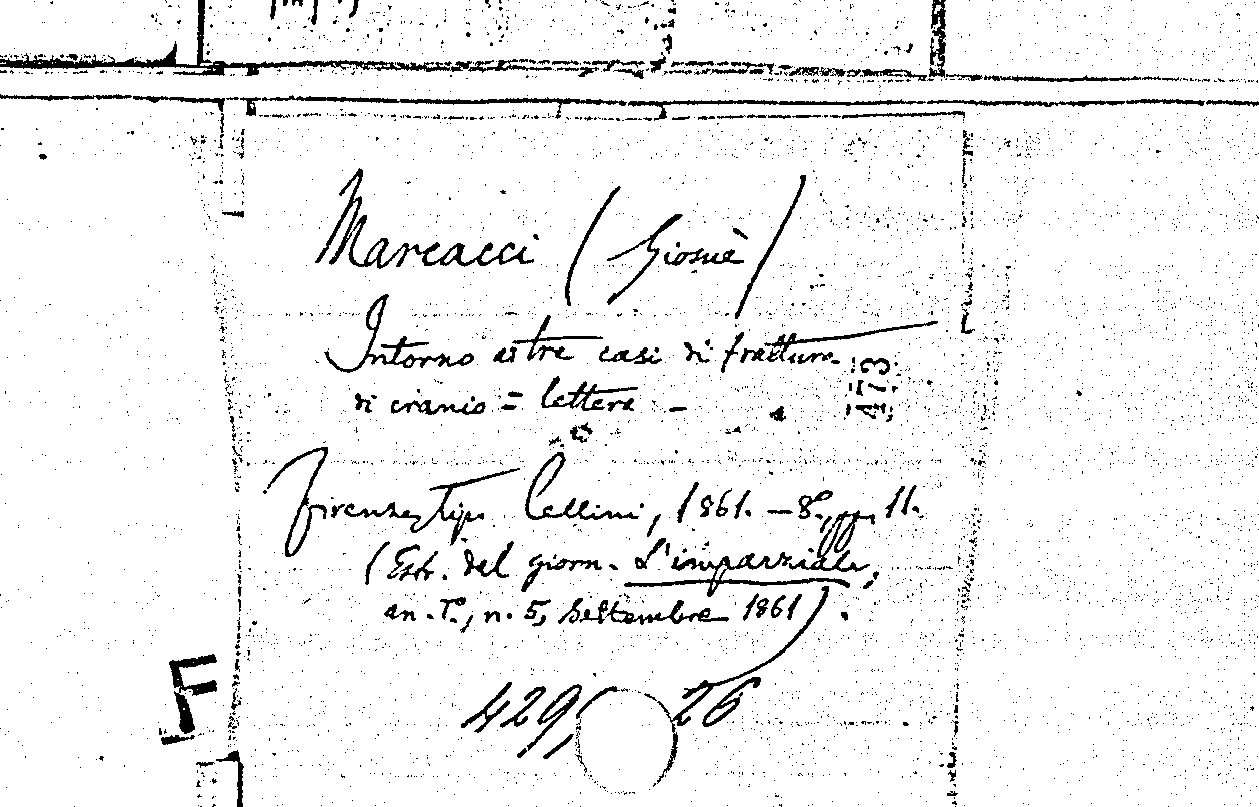 Marcacci (Giosuè)
Intorno a tre casi di fratture
di cranio = lettera -
473
Firenze, tip. Cellini, 1861. - 8º, pp. 11.
(Estr. dal giorn. L'imparziale,
an. Iº, n. 5, Settembre 1861).
429, 26
F